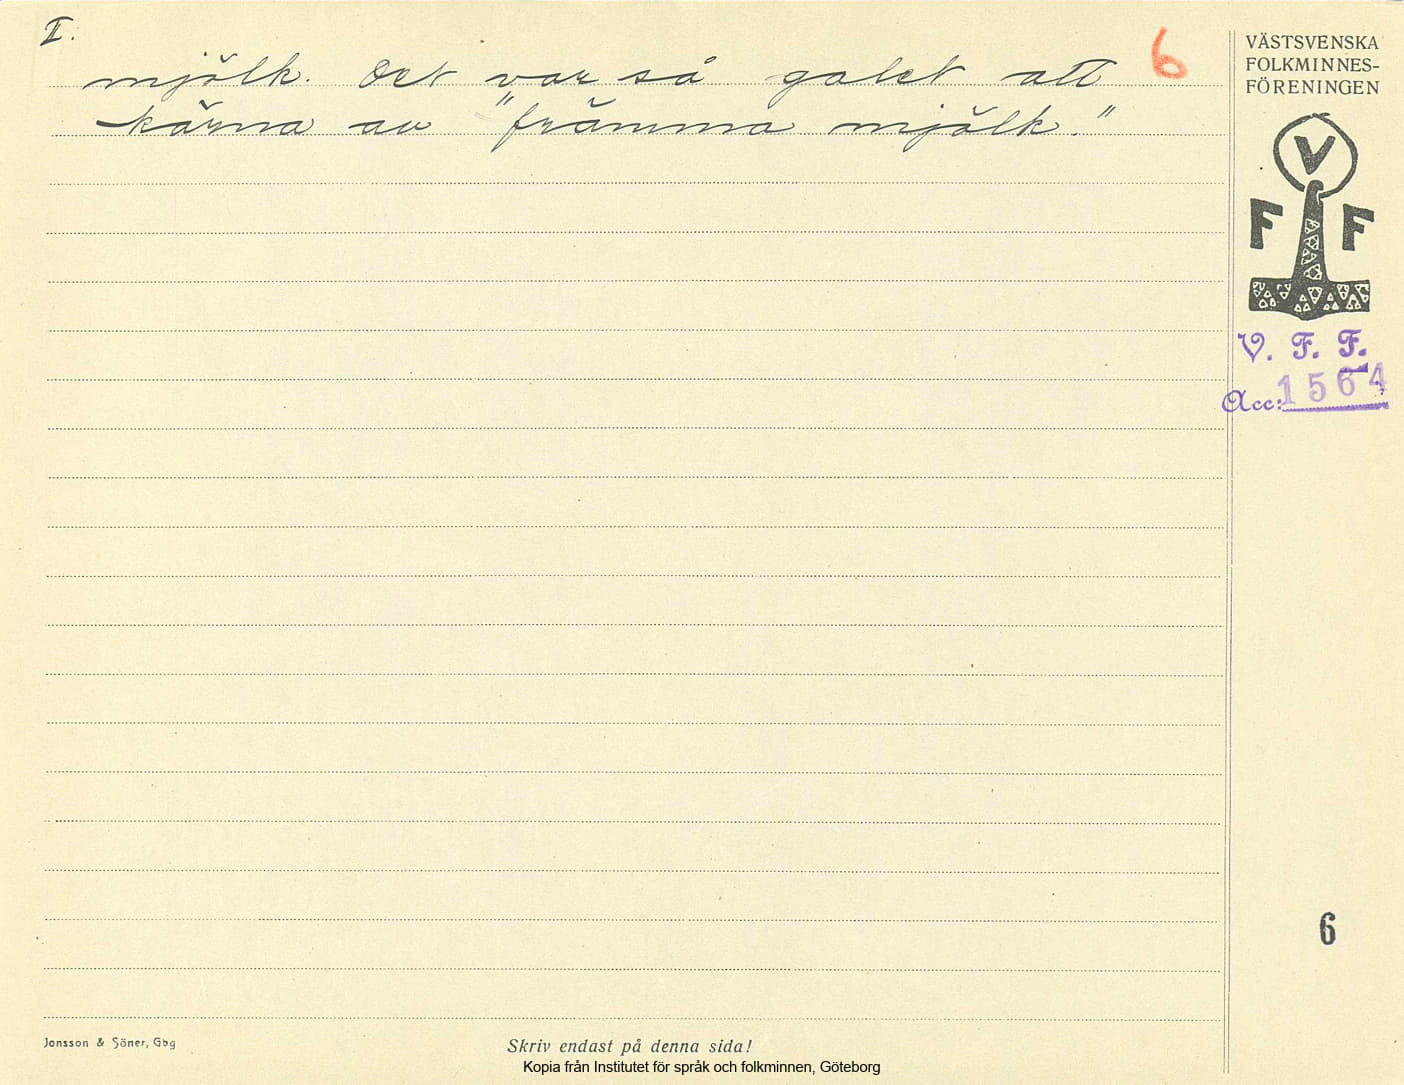 II.
6
mjölk. Det var så galet att
kärna av "främma mjölk."
VÄSTSVENSKA
FOLKMINNES-
FÖRENINGEN
V
F F
V. F. F.
Acc: 1564
6
Jonsson & Söner, Gbg
Skriv endast på denna sida!
Kopia från Institutet för språk och folkminnen, Göteborg